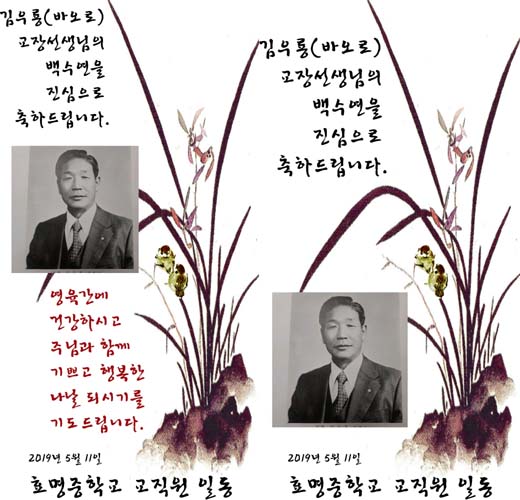 김우룡(바오로)
교장선생님의
백수연을
진심으로
축하드립니다.
영육간에
건강하시고
주님과 함께
기쁘고 행복한
나날 되시기를
기도드립니다.
2019년 5월 11일
효명중학교 교직원 일동
김우룡(바오로)
교장선생님의
백수연을
진심으로
축하드립니다.
2019년 5월 11일
효명중학교 교직원 일동